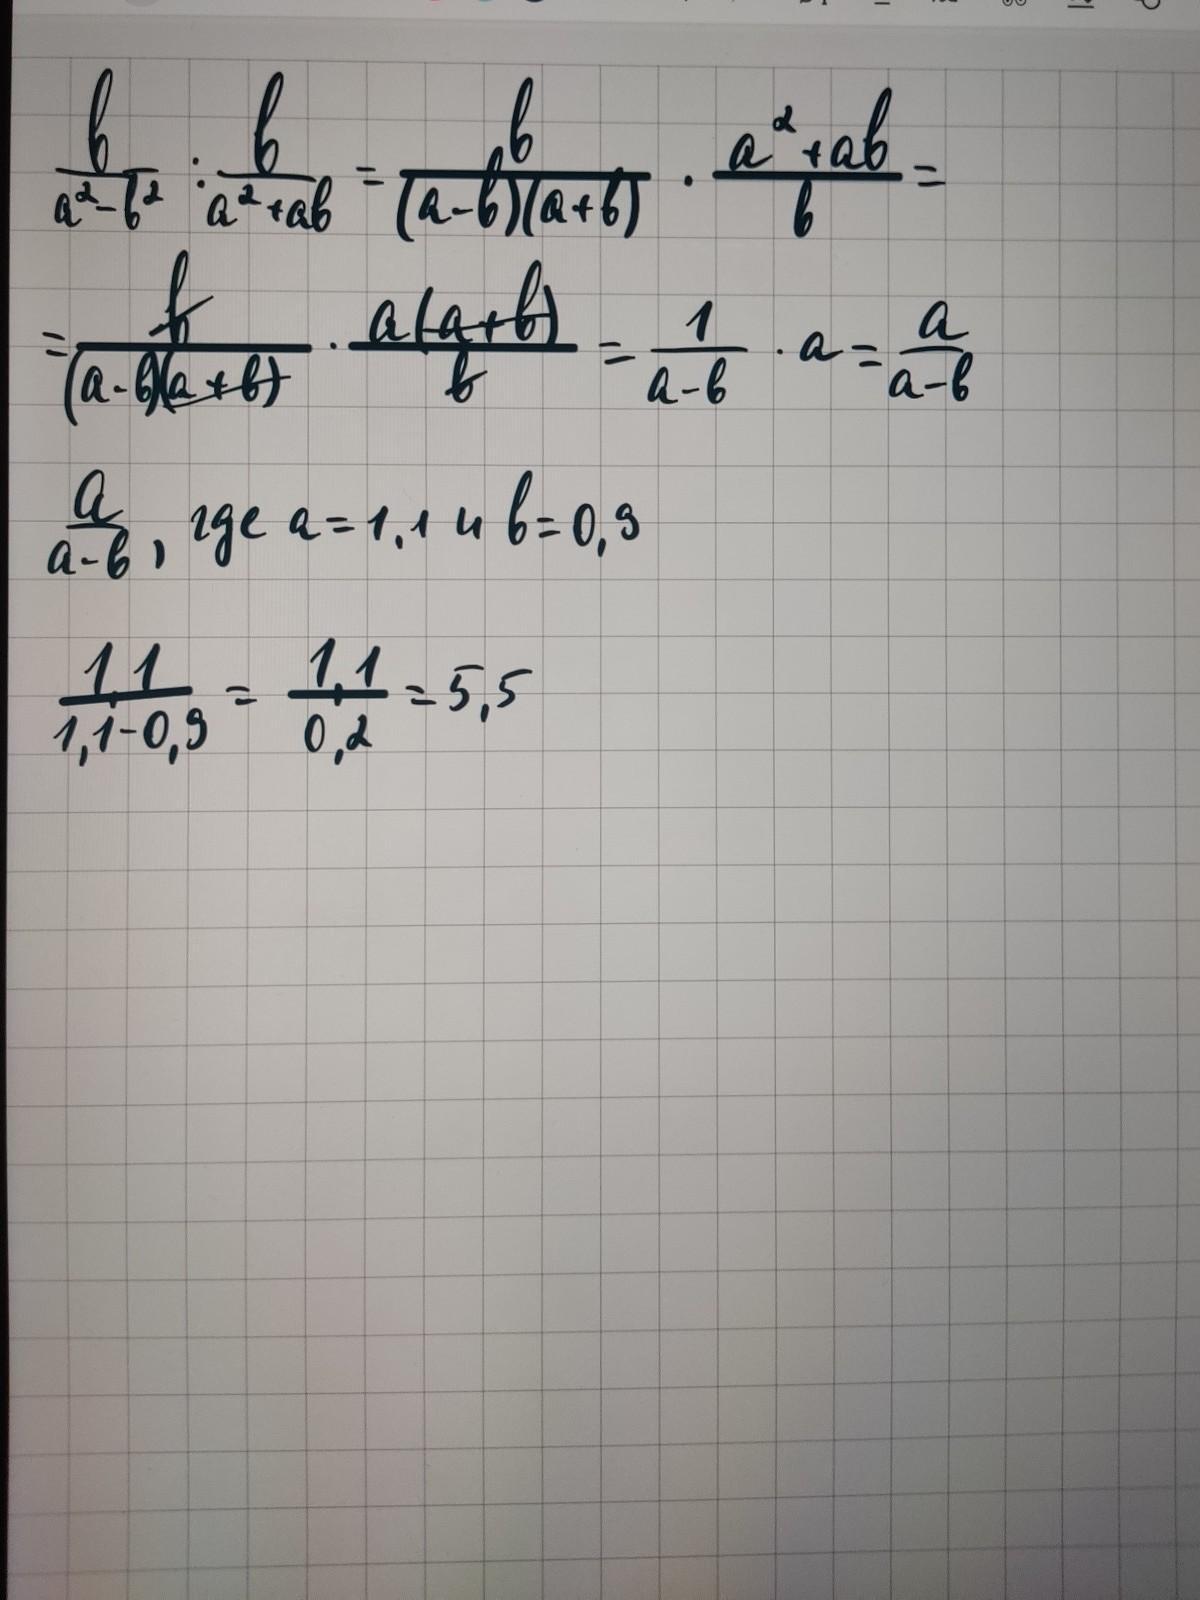 b/(a²-b²) : b/(a²+ab) = b/((a-b)(a+b)) · (a²+ab)/b =
= b/((a-b)(a+b)) · a(a+b)/b = 1/(a-b) · a = a/(a-b)
a/(a-b), где a=1,1 и b=0,9
1,1/(1,1-0,9) = 1,1/0,2 = 5,5